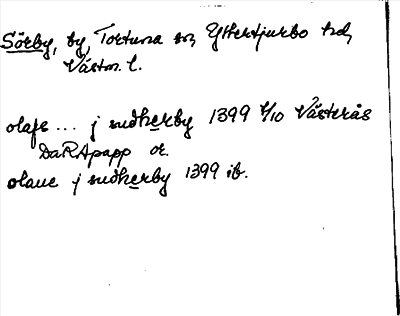 Sörby, by, Tortuna sn, Yttertjurbo hd,
Västm. l.
olafs ... j sudherby 1399 4/10 Västerås
DaRApapp or.
olaue j sudherby 1399 ib.